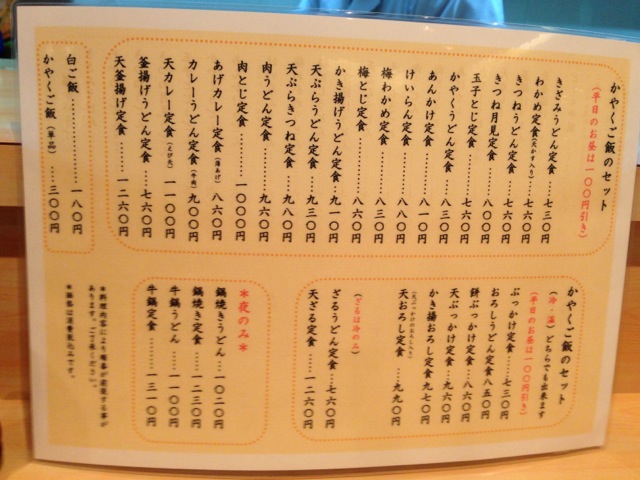 かやくご飯のセット
(平日のお昼は一〇〇円引き)
きざみうどん定食………七三〇円
わかめ定食(天かす入り)………七六〇円
きつねうどん定食………七六〇円
きつね月見定食………八〇〇円
玉子とじ定食………七六〇円
かやくうどん定食………八三〇円
あんかけ定食………八一〇円
けいらん定食………八八〇円
梅わかめ定食………八三〇円
梅とじ定食………八六〇円
かき揚げうどん定食…九一〇円
天ぷらうどん定食……九三〇円
天ぷらきつね定食……九八〇円
肉うどん定食………九六〇円
肉とじ定食………一〇〇〇円
あげカレー定食(薄あげ)八六〇円
カレーうどん定食(牛肉)九〇〇円
天カレー定食(えび天)一一〇〇円
釜揚げうどん定食……七六〇円
天釜揚げ定食………一二六〇円
白ご飯………………一八〇円
かやくご飯(単品)…三〇〇円
かやくご飯のセット
(冷・温)どちらでも出来ます
(平日のお昼は一〇〇円引き)
ぶっかけ定食……七三〇円
おろしうどん定食八五〇円
餅ぶっかけ定食…八六〇円
天ぶっかけ定食…九六〇円
かき揚おろし定食九七〇円
天おろし定食……九九〇円
(天ぶっかけのおろし入り)
(ざるは冷のみ)
ざるうどん定食……七六〇円
天ざる定食………一二六〇円
*夜のみ*
鍋焼きうどん…一〇二〇円
鍋焼き定食……一二三〇円
牛鍋うどん……一一〇〇円
牛鍋定食………一三一〇円
*料理内容により順番が前後する事が
あります。ご了承ください。
*価格は消費税込みです。